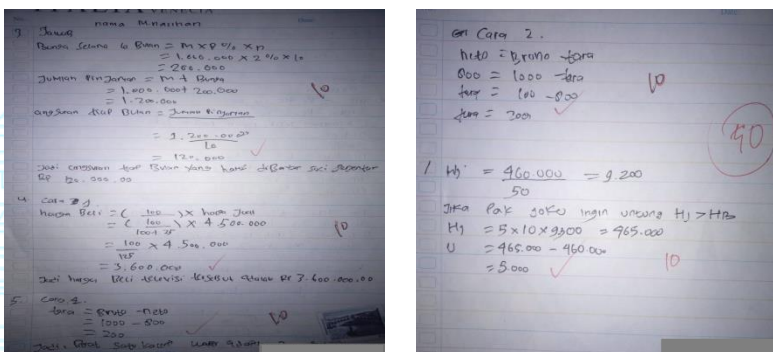 3. Jawab
Bunga Selama 10 Bulan = M x P % x n
= 1.000.000 x 2 % x 10
= 200.000
Jumlah Pinjaman = M + Bunga
= 1.000.000 + 200.000
= 1.200.000
10
angsuran tiap Bulan = Jumlah Pinjaman
= 1.200.000
10
= 120.000
Jadi angsuran tiap Bulan yang harus dibayar suci sebesar
Rp 120.000.00
4. Cara
harga Beli = ( 100 ) x harga Jual
= ( 100 ) x 4.500.000
100 + 25
= 100 x 4.500.000
125
= 3.600.000
10
Jadi harga Beli televisi tersebut adalah Rp 3.600.000.00
5. Cara 1.
tara = Bruto - neto
= 1000 - 800
= 200
10
Cara 2.
neto = Bruno - tara
800 = 1000 - tara
tara = 100 - 800
tara = 200
10
40
1 Hj = 460.000 = 9.200
50
Jika Pak joko ingin untung Hj > HB
Hj = 5 x 10 x 9300 = 465.000
U = 465.000 - 460.000
= 5.000
10